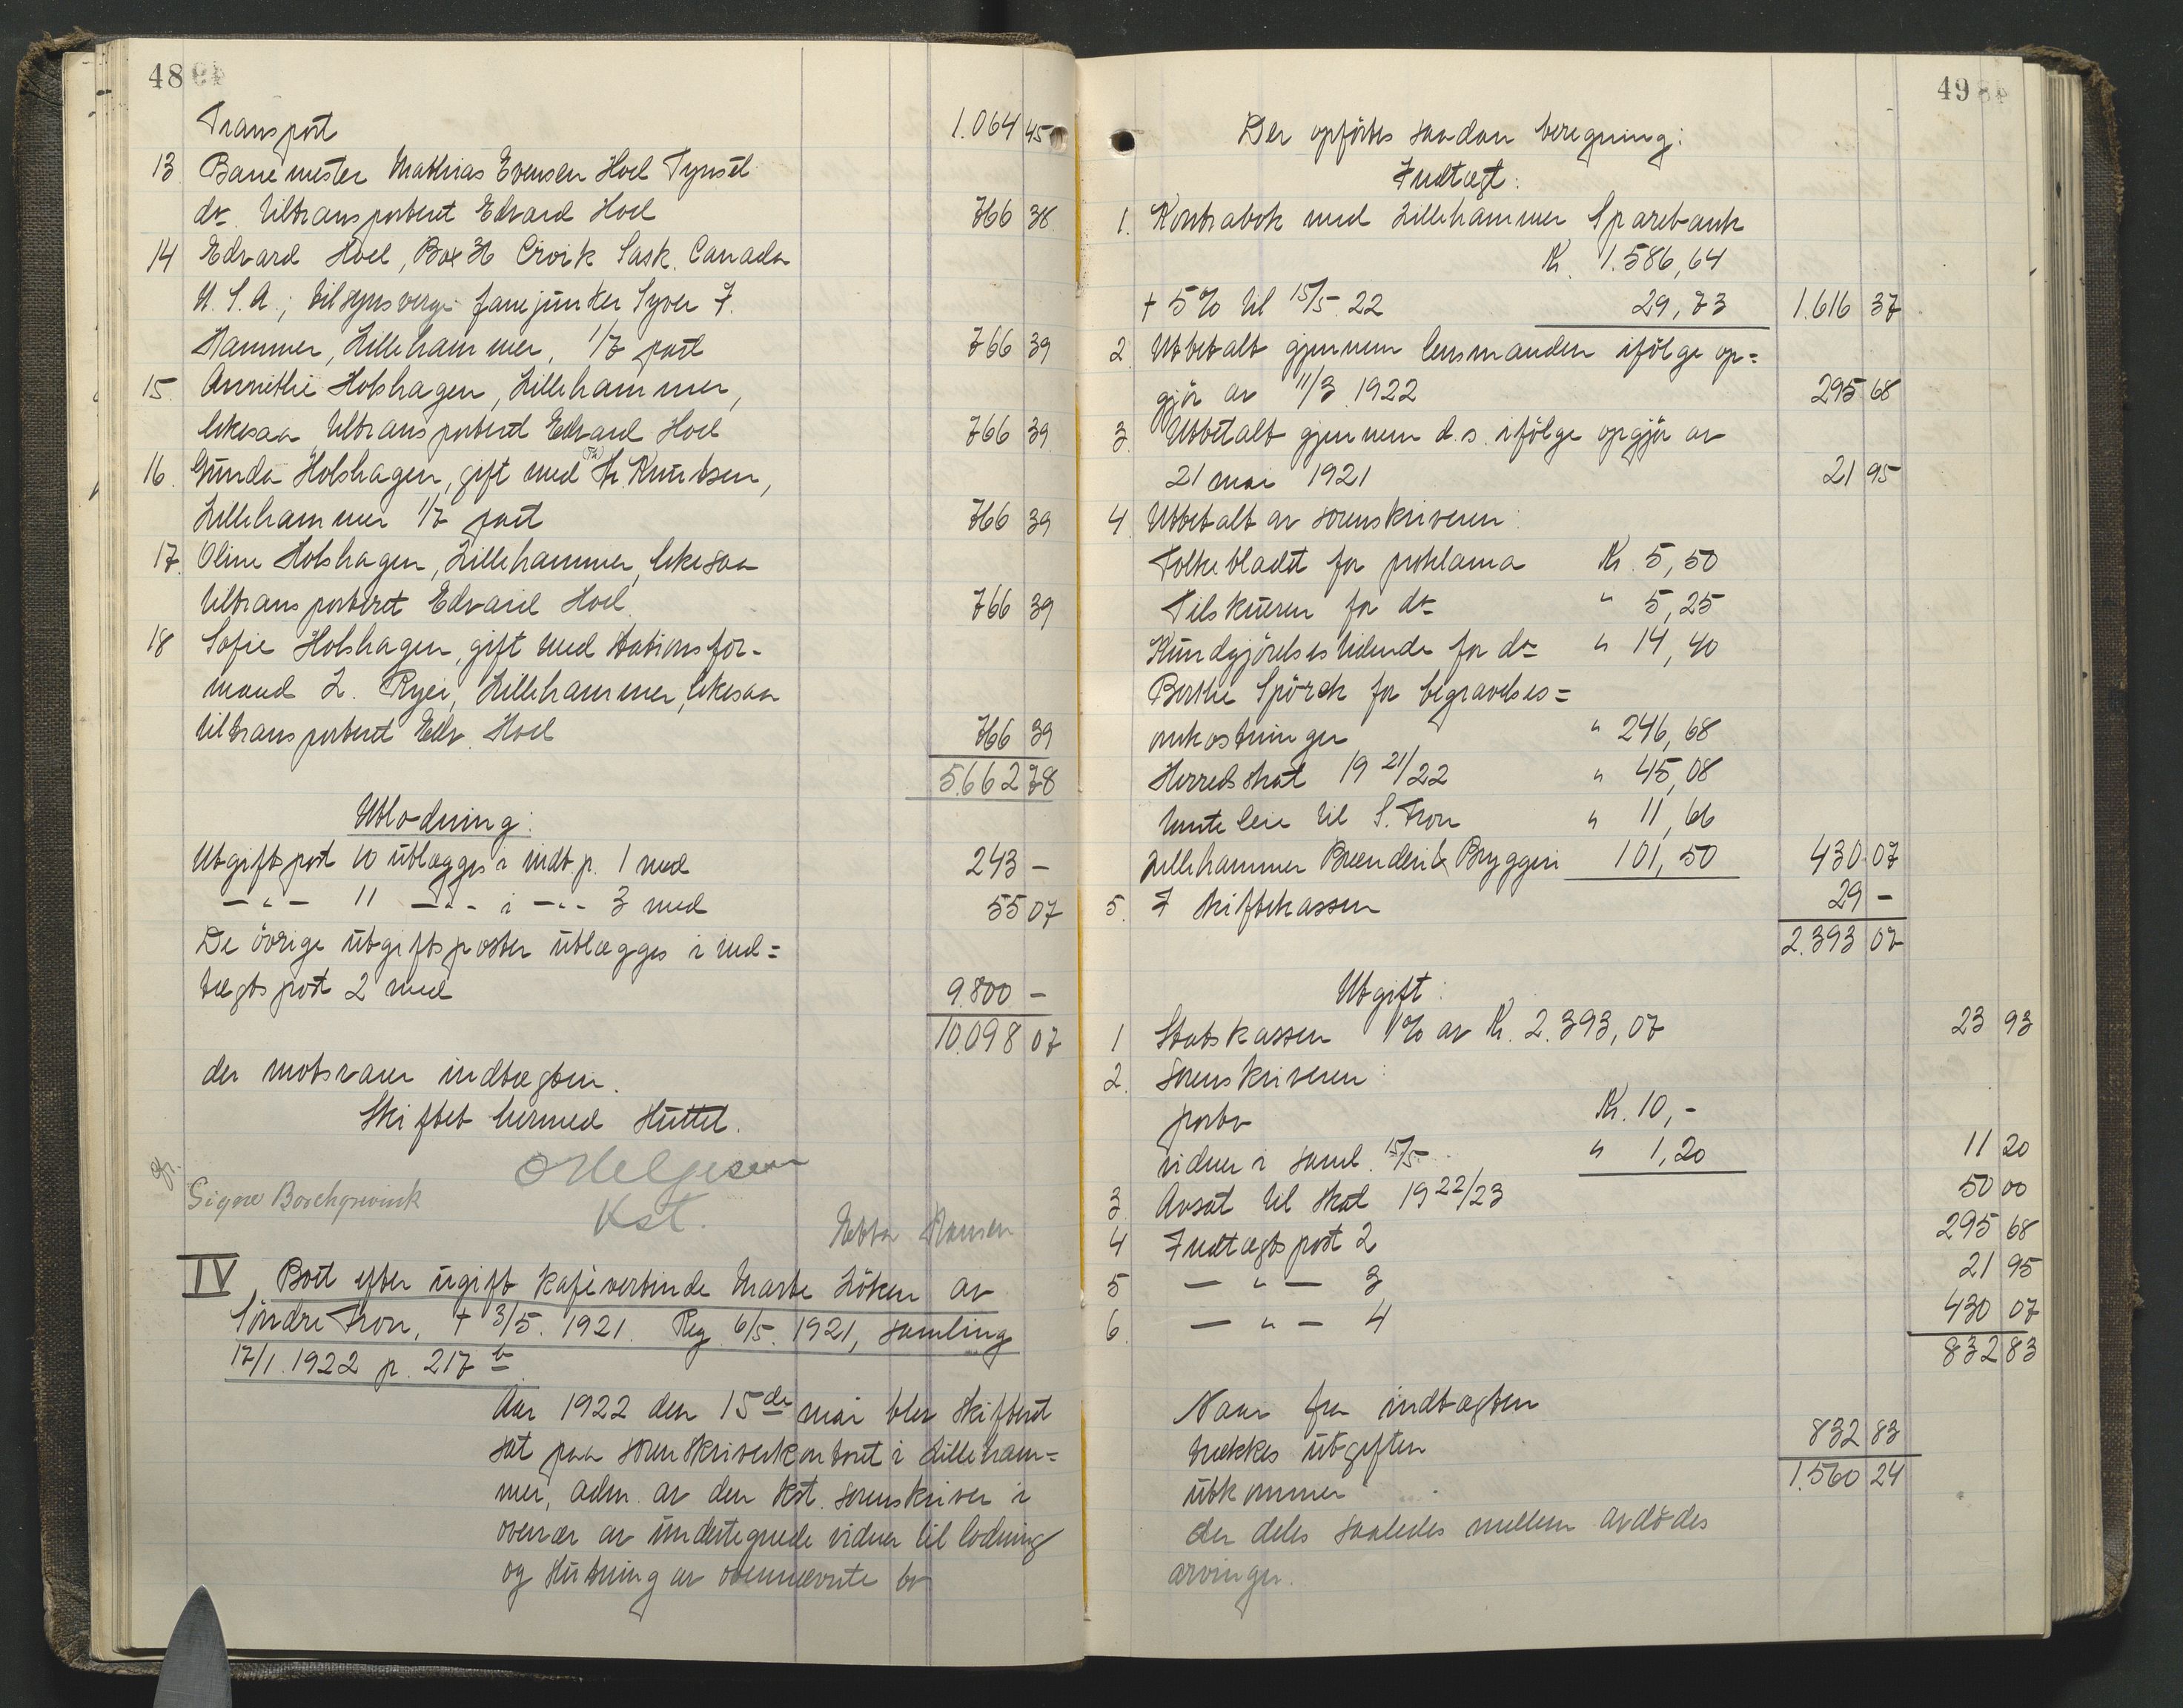 48
Transport 1.064 45
13 Banemester Mathias Evensen Hoel Tynset
do. tiltransporteret Edvard Hoel 766 38
14 Edvard Hoel, Box 36 Sask. Canada
U.S.A.; tilsynsverge fanejunker Syver F.
Hammer, Lillehammer, 1/7 part 766 39
15. Annethe Holshagen, Lillehammer,
likesaa tiltransporteret Edvard Hoel 766 39
16. Gunda Holshagen, gift med Kr. Knutsen,
Lillehammer 1/7 part 766 39
17. Oline Holshagen, Lillehammer, likesaa
tiltransporteret Edvard Hoel 766 39
18 Sofie Holshagen, gift med stationsfor-
mand L. Ryen, Lillehammer, likesaa
tiltransporteret Edv. Hoel 766 39
5.662 78
Utlodning:
Utgiftspost 10 utlægges i indt. p. 1 med 243 -
- " - 11 - " - i - " - 3 med 55 07
De övrige utgiftsposter utlægges i ind=
tægtspost 2 med 9.800 -
10.098 07
der motsvarer indtægten.
Skiftet hermed sluttet.
O Helgesen
Kst.
Signe Borchgrevink
Ebba Hansen
IV Boet efter ugift kafévertinde Marte Löken av
Söndre Fron, + 3/5. 1921. Reg. 6/5. 1921, samling
17/1. 1922 p. 217 b
Aar 1922 den 15de mai blev skifteret
sat paa sorenskriverkontoret i Lilleham=
mer, adm. av den kst. sorenskriver i
overvær av undertegnede vidner til lodning
og slutning av ovennævnte bo
49
Der opförtes saadan beregning:
Indtægt:
1. Kontrabok med Lillehammer Sparebank
Kr. 1.586,64
+ 5% til 15/5. 22 29,73 1.616 37
2 Utbetalt gjennem lensmanden ifölge op=
gjör av 11/3 1922 295 68
3 Utbetalt gjennem d.s. ifölge opgjör av
21 mai 1921 21 95
4 Utbetalt av sorenskriveren:
Folkebladet for proklama Kr. 5,50
Tilskueren for do " 5,25
Kundgjörelsestidende for do " 14,40
Borthe Spörck for begravelses=
omkostninger " 246,68
Herredsskat 19 21/22 " 45,08
tomteleie til S. Fron " 11,66
Lillehammer Brænderi & Bryggeri 101,50 430 07
5. I skiftekassen 29 -
2.393 07
Utgift:
1 Statskassen 1% av Kr. 2.393,07 23 93
2. Sorenskriveren:
porto Kr. 10,-
vidner i saml. 15/5 " 1,20 11 20
3 Avsat til skat 19 22/23 50 00
4 Indtægtspost 2 295 68
5 - " - 3 21 95
6. - " - 4 430 07
832 83
Naar fra indtægten
trækkes utgiften 832 83
utkommer 1.560 24
der deles saaledes mellem avdödes
arvinger.